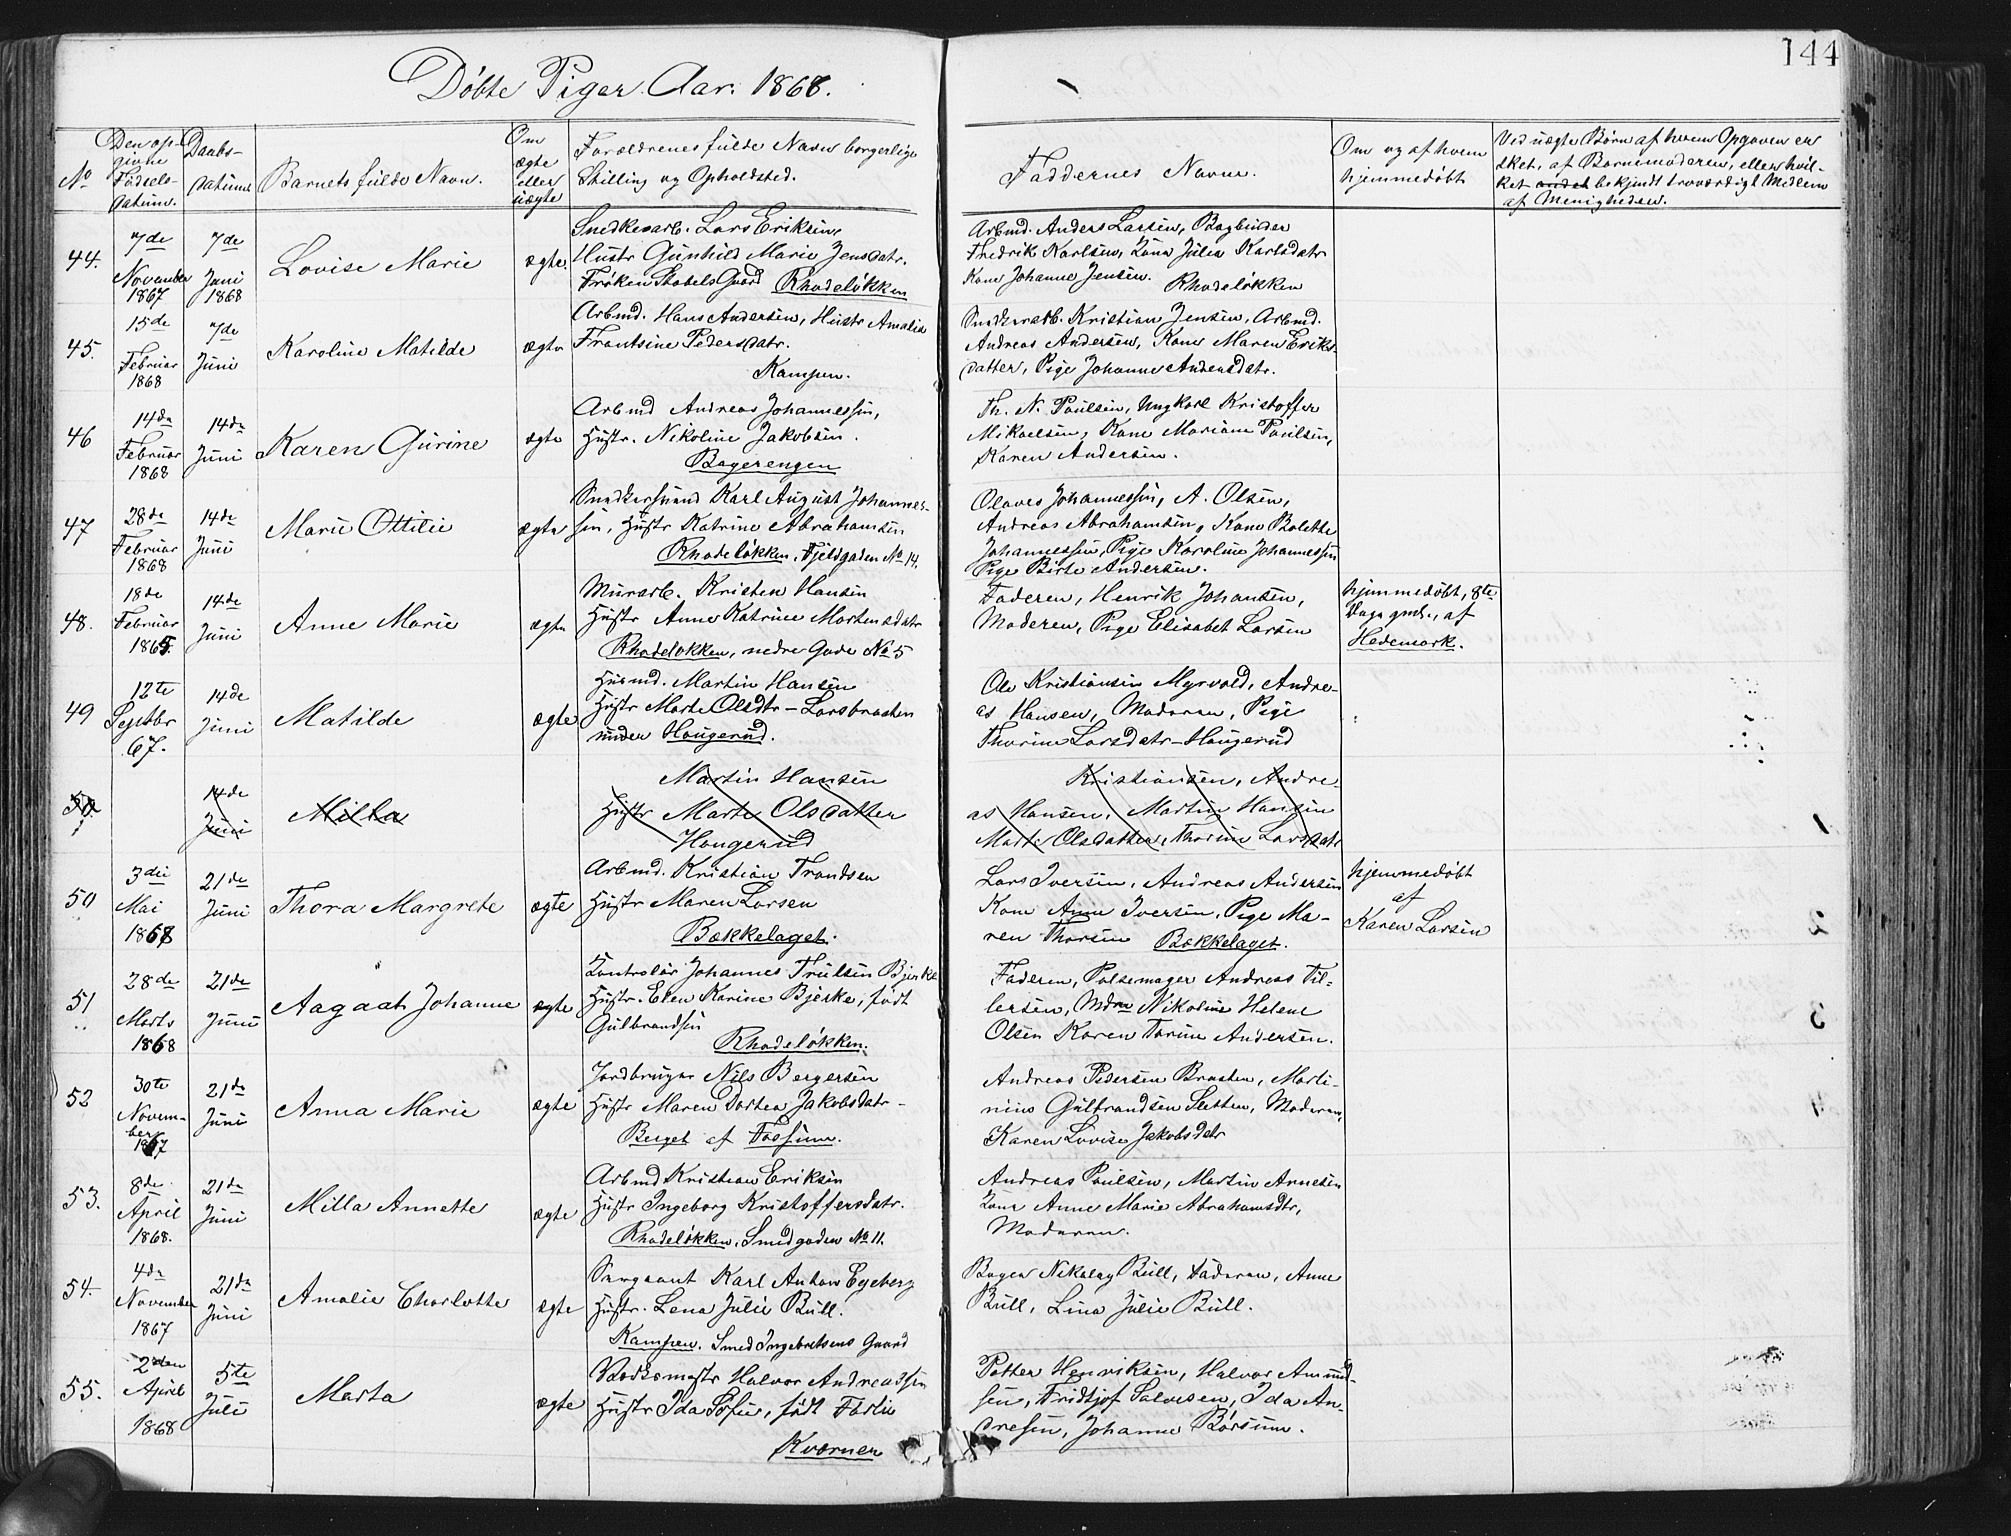 144
Døbte Piger Aar. 1868.
No
Den op-
givne
Fødsels-
datum.
Daabs-
datum
Barnets fulde Navn.
Om
ægte
eller
uægte
Forældrenes fulde Navn borgerlige
Stilling og Opholdsted.
Faddernes Navne.
Om og af hvem
hjemmedøbt
Ved uægte Børn af hvem Opgaven er
sket, af Barnemoderen, eller hvil-
ket andet bekjendt troværdigt Medlem
af Menigheden.
44.
7de
November
1867
7de
Juni
1868
Lovise Marie
ægte.
Snedkerarb. Lars Eriksen,
Hustr Gunhild Marie Jensdatr.
Frøken Stabels Gaard Rhodeløkken
Arbmd. Anders Larsen, Bogbinder
Fredrik Karlsen, Kone Julia Karlsdatr
Kone Johanne Jensen. Rhodeløkken
45.
15de
Februar
1868
7de
Juni
Karoline Matilde
ægte
Arbmd. Hans Andersen, Hustr Amalia
Frantsine Pedersdatr.
Kampen.
Snedkerarb. Kristian Jensen, Arbmd.
Andreas Andersen, Kone Maren Eriks-
datter, Pige Johanne Andersdatr.
46
14de
Februar
1868
14de
Juni
Karen Gurine
ægte
Arbmd Andreas Johannessen,
Hustr. Nikoline Jakobsen.
Bagerengen
Th. N. Paulsen, Ungkarl Kristoffer
Mikaelsen, Kone Mariane Paulsen,
Karen Andersen.
47
28de
Februar
1868
14de
Juni
Marie Ottilie
ægte
Snedkersvend Karl August Johannes-
sen, Hustr Katrine Abrahamsen
Rhodeløkken, Fjeldgaden No 14.
Olaves Johannessen, A. Olsen,
Andreas Abrahamsen, Kone Bolette
Johannessen, Pige Karoline Johannessen
Pige Birte Andersen.
48.
18de
Februar
1865.
14de
Juni
Anne Marie
ægte
Murarb. Kristen Hansen
Hustr Anne Katrine Mortensdatr
Rhodeløkken, nedre Gade No 5
Faderen, Henrik Johansen,
Moderen, Pige Elisabet Larsen
hjemmedøbt, 8te
Dage gml., af
Hedemark.
49
12te
Septbr
67.
14de
Juni
Matilde
ægte
Husmd. Martin Hansen
Hustr Marte Olsdtr - Larsbraaten
under Haugerud.
Ole Kristiansen Myrvold, Andre-
as Hansen, Moderen, Pige
Thorine Larsdatr - Haugerud
50
14de
Juni
Milla
Martin Hansen
Hustr Marte Olsdatter
Haugerud
Kristiansen, Andre-
as Hansen, Martin Hansen
Marte Olsdatter, Thorine Larsdatr
50
3die
Mai
1868
21de
Juni
Thora Margrete
ægte
Arbmd. Kristian Frandsen
Hustr Maren Larsen
Bækkelaget.
Lars Iversen, Andreas Andersen
Kone Anne Iversen, Pige Ma-
ren Thorsen Bækkelaget.
hjemmedøbt
af
Karen Larsen
51
28de
Marts
1868
21de
Juni
Aagaat Johanne
ægte
Kontrolør Johannes Trulsen Bjerke
Hustr. Elen Karine Bjerke, født
Gulbrandsen
Rhodeløkken.
Faderen, Pølsemager Andreas Til-
lersen, Mdm Nikoline Helene
Olsen Karen Torine Andersen.
52
30te
Novem-
ber
1867
21de
Juni
Anna Marie
ægte
Jordbruger Nils Bergersen
Hustr Maren Dortea Jakobsdatr -
Berget af Fossum.
Andreas Pedersen Braaten, Marti-
nius Gulbrandsen Sletten, Moderen,
Karen Lovise Jakobsdatr
53.
8de
April
1868.
21de
Juni
Milla Annette
ægte
Arbmd Kristian Eriksen
Hustr Ingeborg Kristoffersdatr.
Rhodeløkken, Smedgaden No 11.
Andreas Paulsen, Martin Arnesen
Kone Anne Marie Abrahamsdtr,
Moderen.
54.
4de
November
1867
21de
Juni
Amalie Charlotte
ægte
Sergeant Karl Anton Egeberg
Hustr. Lena Julie Bull.
Kampen. Smed Ingebretsens Gaard
Bager Nikolay Bull, Faderen, Anne
Bull, Lina Julie Bull.
55.
2den
April
1868
5te
Juli
Marta
ægte
Halvor Andreassen
Hustr Ida Sofie, født
Kværnen
Petter Henriksen, Halvor Amund-
sen, Fridtjof Salvesen, Ida An-
dresen, Johanne Børsum.